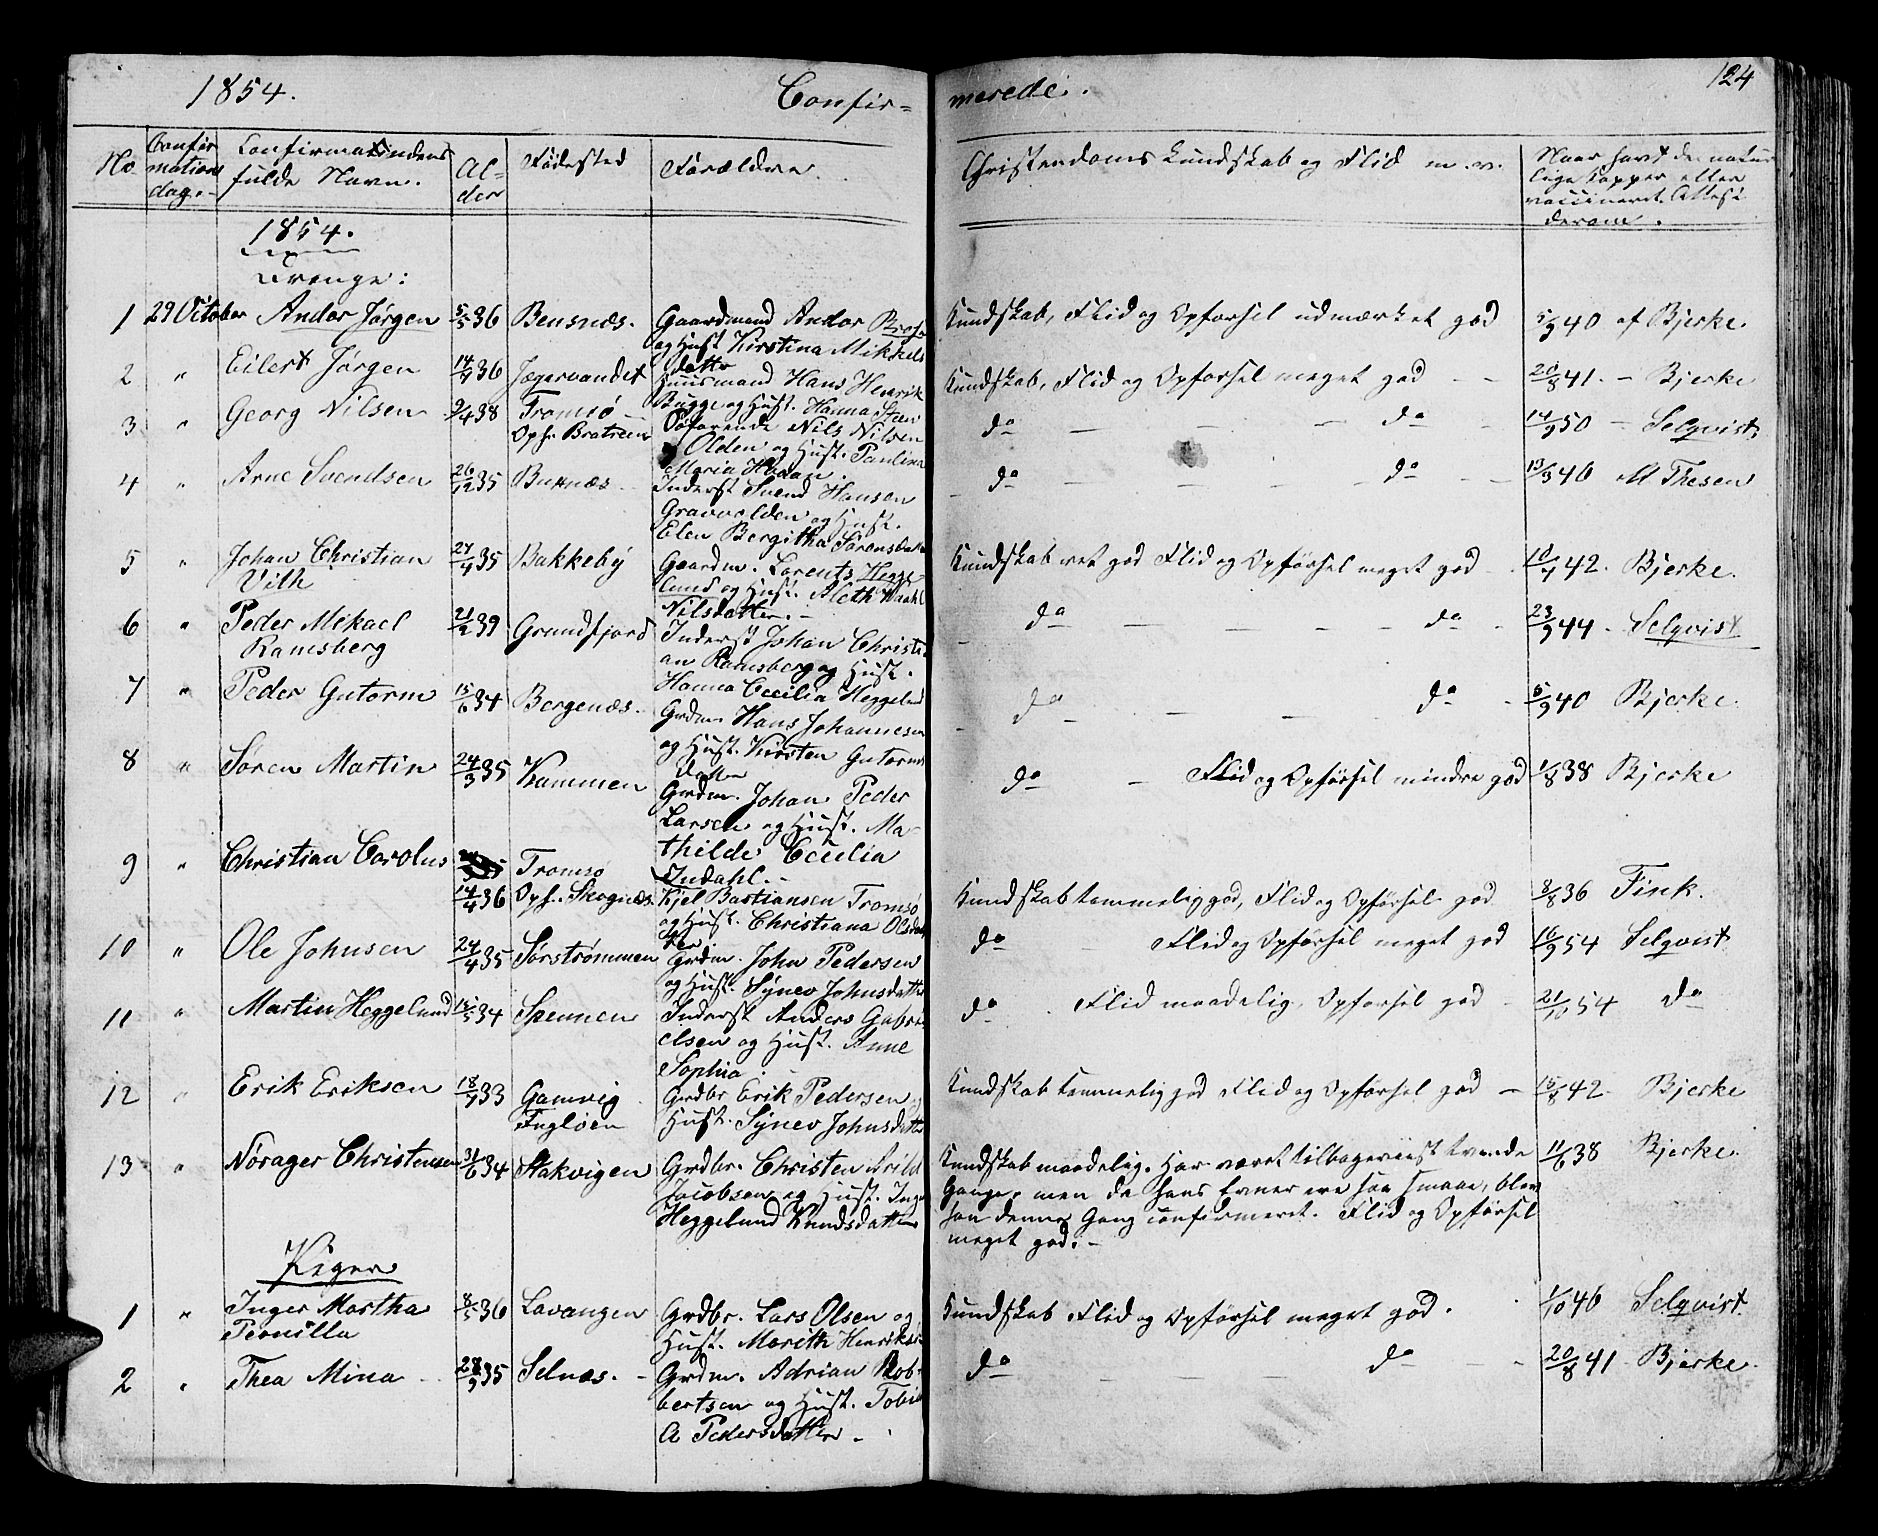 1854.
Confir=
merede.
124
No
Confir
mations
dag.
Confirmatindens
fulde Navn.
Al-
der
Födested
Forældre.
Christendoms Kundskab og Flid m. v.
Naar havt de natur
lige Kopper eller
vaccineret. Attest
derom.
1854.
Drenge:
1 29 October Andor Jørgen 5/5 36 Bensnæs. Gaardmand Andor
og Hust Kirstina Mikkels
datter
Kundskab, Flid og Opførsel udmærket god 5/9 40 af Bjerke.
2 " Eilert Jørgen 14/7 36 Jægervandet Huusmand Hans Henrik
Bugge og Hust. Hanna
Kundskab, Flid og Opførsel meget god - - 20/8 41. - Bjerke
3 " Georg Nilsen 9/4 38 Tromsö
Oph. Bratreen
Söfarende Nils Nilsen
Olden og Hust. Paulina
Maria
do - - - do - 14/9 50 - Selqvist
4 " Arne Svendsen 26/12 35 Buxnæs Inderst Svend Hansen
Gravvolden og Hust.
Elen Bergitha Sörensdatter
do - - - do - 13/9 40 M Thesen
5 " Johan Christian
Vith
27/4 35 Bakkeby Gaardm. Lorents Hegge
lund og Hust. Aleth
Nilsdatter.
Kundskab ret god Flid og Opførsel meget god - 10/7 42. Bjerke.
6 " Peder Mikael
Ramsberg
21/2 39 Grundfjord Inderst Johan Christi
an Ramsberg og Hust.
Hanna Cecilia Heggelund
do - - - do - 23/9 44 - Selqvist
7 " Peder Gutorm 15/6 34 Bergenæs. Grdm. Hans Johannesen
og Hust. Kirsten Gutorms
datter
do - - - do - 5/9 40 Bjerke.
8 " Sören Martin 24/3 35 Kammen Grdm. Johan Peder
Larsen og Hust. Ma-
thilde Cecilia
Indahl. -
do - Flid og Opførsel mindre god 1/8 38 Bjerke
9 " Christian Carolus
14/4 36
Tromsö
Oph. Skognæs.
Kjel Bastiansen Tromsø
og Hust. Christiana Olsdat
ter
Kundskab temmelig god, Flid og Opførsel god 8/8 36 Fink.
10 " Ole Johnsen 24/4 35 Sørströmmen Grdm. John Pedersen
og Hust. Synev Johnsdatter
do Flid og Opførsel meget god 16/9 54 Selqvist
11 " Martin Heggelund 15/5 34 Spennen Inderst Anders Gabri
elsen og Hust. Anne
Sophia
do. Flid maadelig, Opførsel god - 21/10 54 do
12 " Erik Eriksen 18/7 33 Gamvig
Fugløen
Grdbr Erik Pedersen og
Hust. Synev Johnsdatter
Kundskab temmelig god Flid og Opførsel god - 15/8 42. Bjerke
13 " Nörager Christensen 31/6 34 Stakvigen Grdbr. Christen Arild
Jacobsen og Hust. Inger
Heggelund Knudsdatter
Kundskab maadelig. Har været tilbageviist tvende
Gange, men da hans Evner ere saa smaae, blev
han denne Gang confirmeret. Flid og Opførsel
meget god. -
11/6 38 Bjerke.
Piger
1 " Inger Martha
Pernilla
8/5 36 Lavangen Grdbr. Lars Olsen og
Hust. Marith Henriks
Kundskab Flid og Opførsel meget god. 1/10 46 Selqvist
2 " Thea Mina - 28/9 35 Selnæs. - Grdm. Adrian Rob-
bertsen og Hust. Tobi
A Pedersdatter -
do - - do - - 20/8 41 - Bjerke